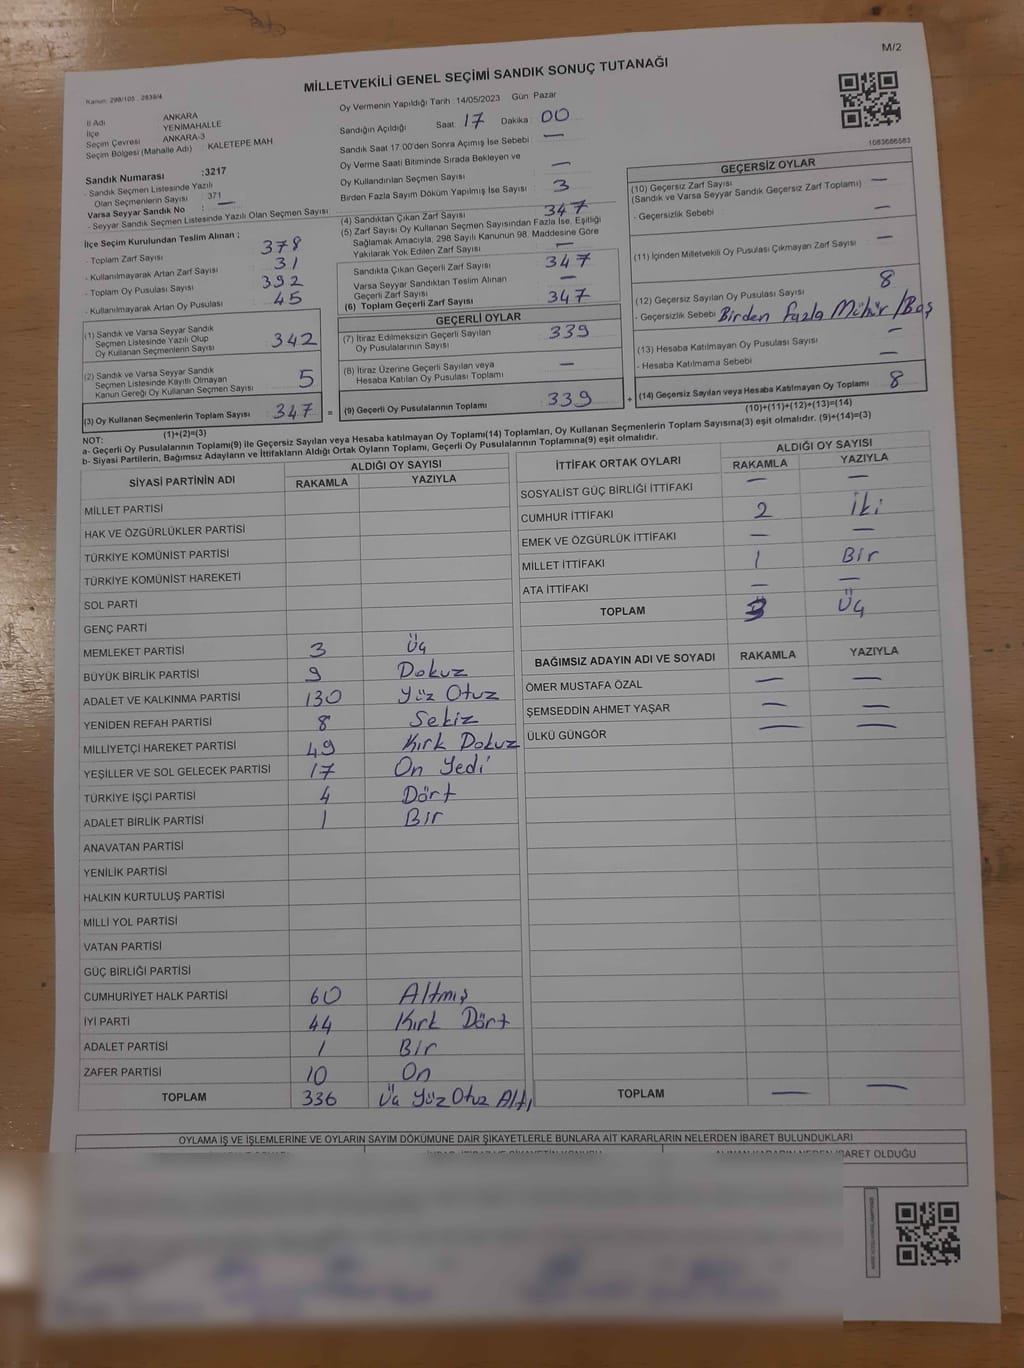 M/2
MİLLETVEKİLİ GENEL SEÇİMİ SANDIK SONUÇ TUTANAĞI
Kanun: 298/105 , 2839/4
İl Adı ANKARA
İlçe YENİMAHALLE
Seçim Çevresi ANKARA-3
Seçim Bölgesi (Mahalle Adı) : KALETEPE MAH
Sandık Numarası :3217
- Sandık Seçmen Listesinde Yazılı
Olan Seçmenlerin Sayısı : 371
Varsa Seyyar Sandık No : —
- Seyyar Sandık Seçmen Listesinde Yazılı Olan Seçmen Sayısı :
İlçe Seçim Kurulundan Teslim Alınan ;
- Toplam Zarf Sayısı 378
- Kullanılmayarak Artan Zarf Sayısı 31
- Toplam Oy Pusulası Sayısı 392
- Kullanılmayarak Artan Oy Pusulası 45
(1) Sandık ve Varsa Seyyar Sandık
Seçmen Listesinde Yazılı Olup
Oy Kullanan Seçmenlerin Sayısı 342
(2) Sandık ve Varsa Seyyar Sandık
Seçmen Listesinde Kayıtlı Olmayan
Kanun Gereği Oy Kullanan Seçmen Sayısı 5
(3) Oy Kullanan Seçmenlerin Toplam Sayısı 347 =
(1)+(2)=(3)
Oy Vermenin Yapıldığı Tarih : 14/05/2023 Gün: Pazar
Sandığın Açıldığı Saat: 17 Dakika : 00
Sandık Saat 17:00'den Sonra Açımış İse Sebebi : —
Oy Verme Saati Bitiminde Sırada Bekleyen ve
Oy Kullandırılan Seçmen Sayısı : —
Birden Fazla Sayım Döküm Yapılmış İse Sayısı : 3
(4) Sandıktan Çıkan Zarf Sayısı 347
(5) Zarf Sayısı Oy Kullanan Seçmen Sayısından Fazla İse, Eşitliği
Sağlamak Amacıyla, 298 Sayılı Kanunun 98. Maddesine Göre
Yakılarak Yok Edilen Zarf Sayısı —
Sandıkta Çıkan Geçerli Zarf Sayısı 347
Varsa Seyyar Sandıktan Teslim Alınan
Geçerli Zarf Sayısı —
(6) Toplam Geçerli Zarf Sayısı 347
GEÇERLİ OYLAR
(7) İtiraz Edilmeksizin Geçerli Sayılan
Oy Pusulalarının Sayısı 339
(8) İtiraz Üzerine Geçerli Sayılan veya
Hesaba Katılan Oy Pusulası Toplamı —
(9) Geçerli Oy Pusulalarının Toplamı 339 +
1083686583
GEÇERSİZ OYLAR
(10) Geçersiz Zarf Sayısı —
(Sandık ve Varsa Seyyar Sandık Geçersiz Zarf Toplamı)
- Geçersizlik Sebebi : —
(11) İçinden Milletvekili Oy Pusulası Çıkmayan Zarf Sayısı —
(12) Geçersiz Sayılan Oy Pusulası Sayısı 8
- Geçersizlik Sebebi Birden Fazla Mühür/Boş
(13) Hesaba Katılmayan Oy Pusulası Sayısı —
- Hesaba Katılmama Sebebi —
(14) Geçersiz Sayılan veya Hesaba Katılmayan Oy Toplamı 8
(10)+(11)+(12)+(13)=(14)
NOT:
a- Geçerli Oy Pusulalarının Toplamı(9) ile Geçersiz Sayılan veya Hesaba katılmayan Oy Toplamı(14) Toplamları, Oy Kullanan Seçmenlerin Toplam Sayısına(3) eşit olmalıdır. (9)+(14)=(3)
b- Siyasi Partilerin, Bağımsız Adayların ve İttifakların Aldığı Ortak Oyların Toplamı, Geçerli Oy Pusulalarının Toplamına(9) eşit olmalıdır.
SİYASİ PARTİNİN ADI ALDIĞI OY SAYISI
RAKAMLA YAZIYLA
MİLLET PARTİSİ
HAK VE ÖZGÜRLÜKLER PARTİSİ
TÜRKİYE KOMÜNİST PARTİSİ
TÜRKİYE KOMÜNİST HAREKETİ
SOL PARTİ
GENÇ PARTİ
MEMLEKET PARTİSİ 3 Üç
BÜYÜK BİRLİK PARTİSİ 9 Dokuz
ADALET VE KALKINMA PARTİSİ 130 Yüz Otuz
YENİDEN REFAH PARTİSİ 8 Sekiz
MİLLİYETÇİ HAREKET PARTİSİ 49 Kırk Dokuz
YEŞİLLER VE SOL GELECEK PARTİSİ 17 On Yedi
TÜRKİYE İŞÇİ PARTİSİ 4 Dört
ADALET BİRLİK PARTİSİ 1 Bir
ANAVATAN PARTİSİ
YENİLİK PARTİSİ
HALKIN KURTULUŞ PARTİSİ
MİLLİ YOL PARTİSİ
VATAN PARTİSİ
GÜÇ BİRLİĞİ PARTİSİ
CUMHURİYET HALK PARTİSİ 60 Altmış
İYİ PARTİ 44 Kırk Dört
ADALET PARTİSİ 1 Bir
ZAFER PARTİSİ 10 On
TOPLAM 336 Üç Yüz Otuz Altı
İTTİFAK ORTAK OYLARI ALDIĞI OY SAYISI
RAKAMLA YAZIYLA
SOSYALİST GÜÇ BİRLİĞİ İTTİFAKI — —
CUMHUR İTTİFAKI 2 İki
EMEK VE ÖZGÜRLÜK İTTİFAKI — —
MİLLET İTTİFAKI 1 Bir
ATA İTTİFAKI — —
TOPLAM 3 Üç
BAĞIMSIZ ADAYIN ADI VE SOYADI RAKAMLA YAZIYLA
ÖMER MUSTAFA ÖZAL — —
ŞEMSEDDİN AHMET YAŞAR — —
ÜLKÜ GÜNGÖR — —
TOPLAM — —
OYLAMA İŞ VE İŞLEMLERİNE VE OYLARIN SAYIM DÖKÜMÜNE DAİR ŞİKAYETLERLE BUNLARA AİT KARARLARIN NELERDEN İBARET BULUNDUKLARI
ALINAN KARARIN NEDEN İBARET OLDUĞU